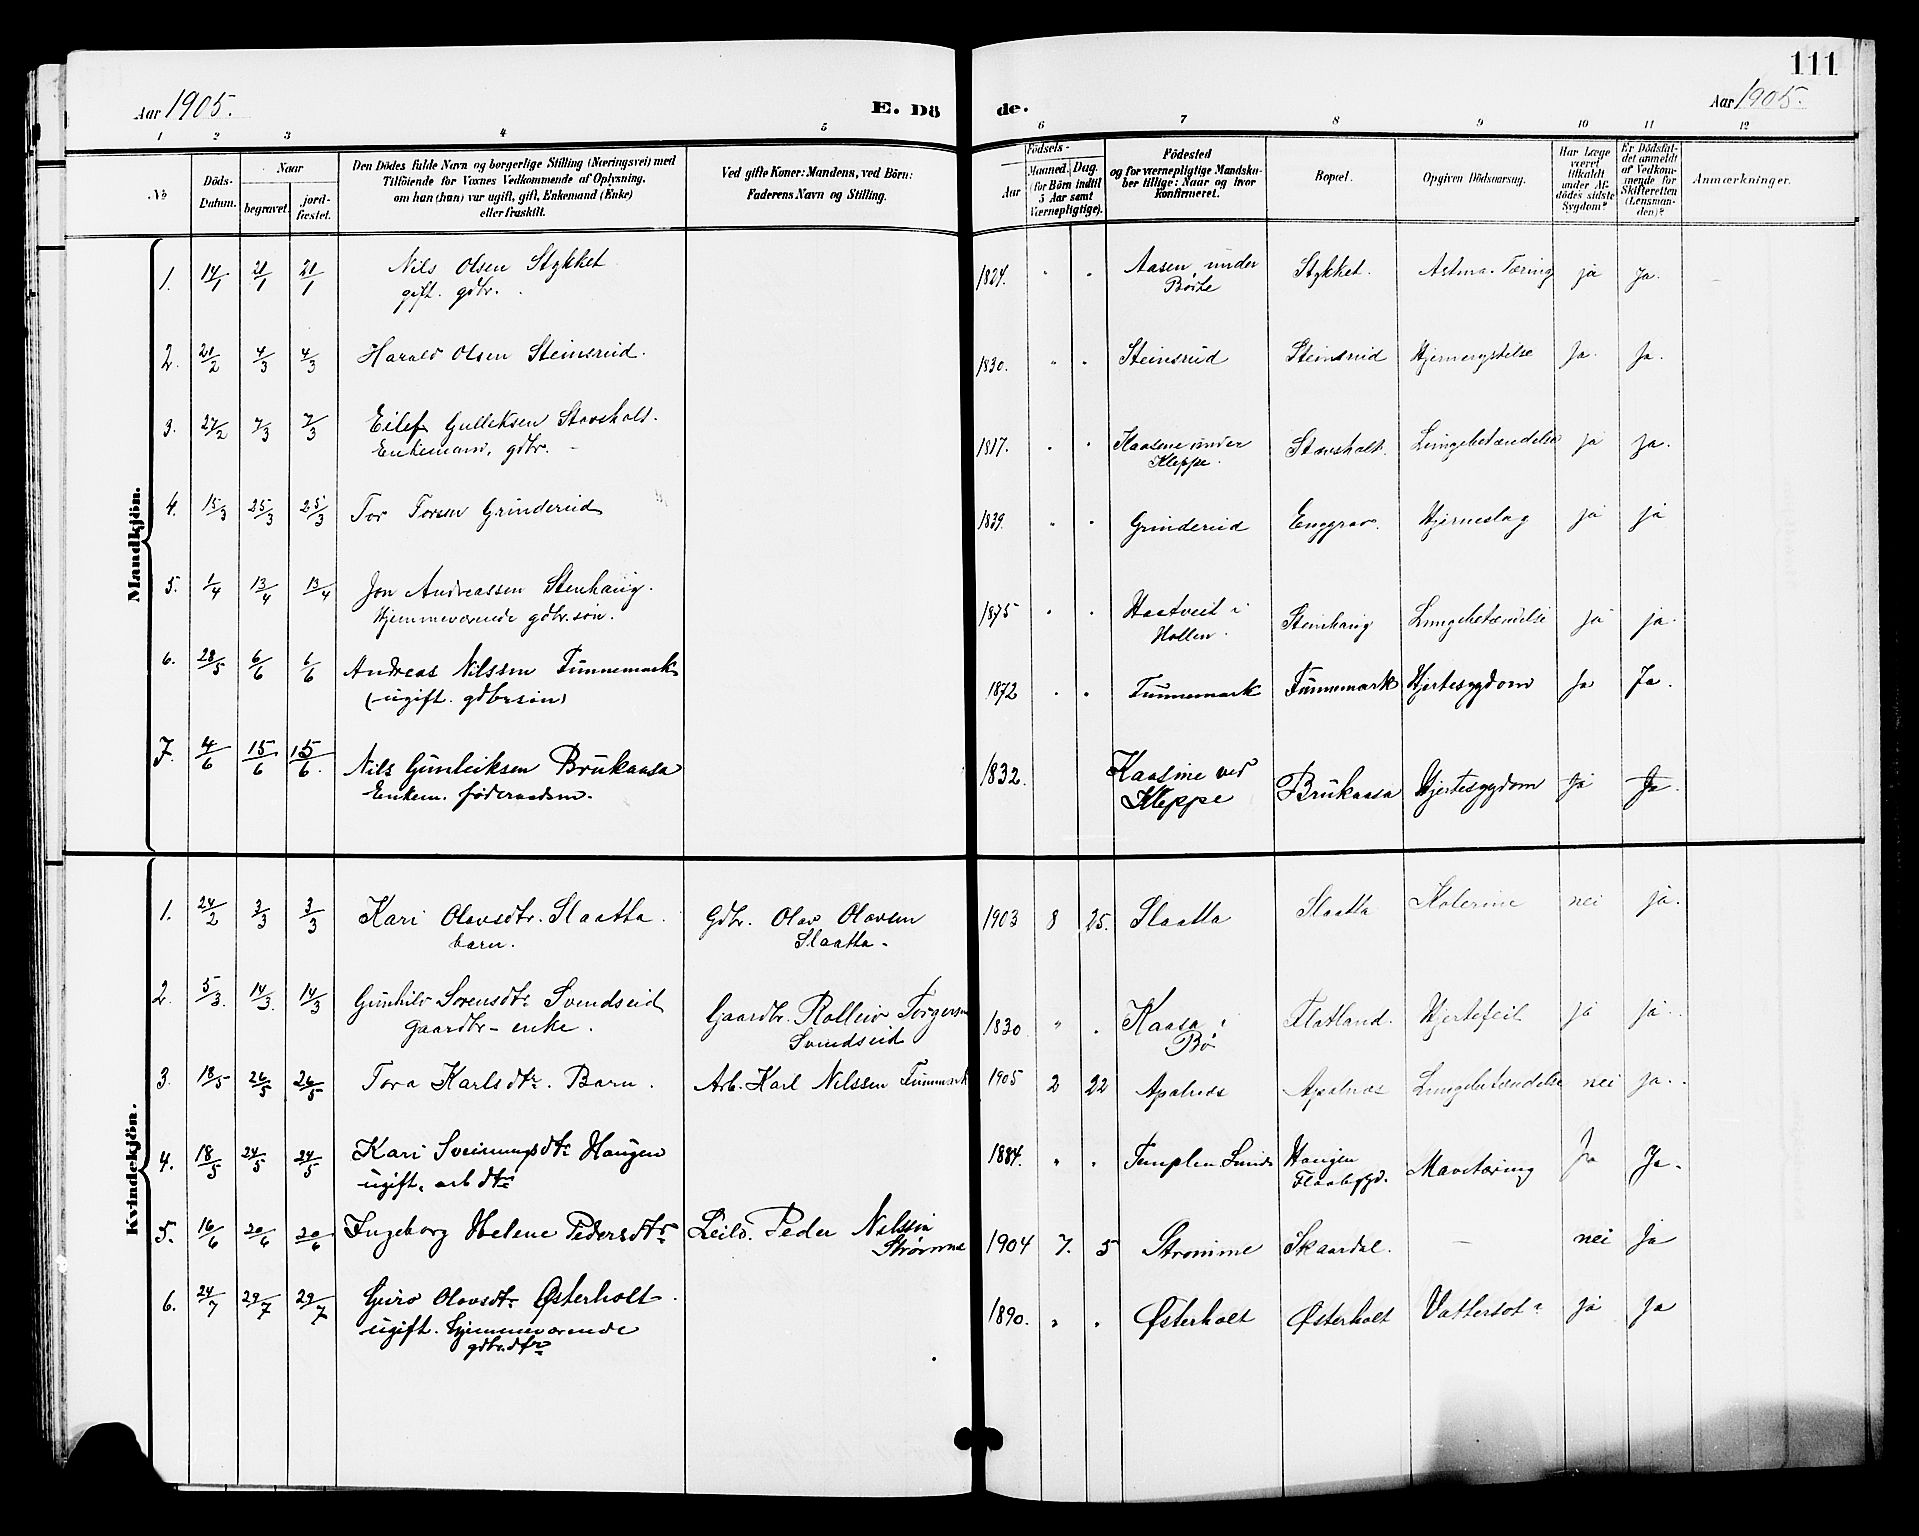 111
Aar 1905.
E. Dö de.
Aar 1905.
1 2 3 4 5 6 7 8 9 10 11 12
No
Döds-
Datum.
Naar
begravet.
jord-
fæstet.
Den Dödes fulde Navn og borgerlige Stilling (Næringsvei) med
Tilföiende for Voxnes Vedkommende af Oplysning,
om han (hun) var ugift, gift, Enkemand (Enke)
eller fraskilt.
Ved gifte Koner: Mandens, ved Börn:
Faderens Navn og Stilling.
Födsels-
Aar
Maaned. Dag.
(for Börn indtil
5 Aar samt
Værnepligtige).
Födested
og for værnepligtige Mandska-
ber tillige: Naar og hvor
Konfirmeret.
Bopæl.
Opgiven Dödsaarsag.
Har Læge
været
tilkaldt
under Af-
dödes sidste
Sygdom?
Er Dödsfal-
det anmeldt
af Vedkom-
mende for
Skifteretten
(Lensman-
den)?
Anmærkninger.
Mandkjön.
1. 14/1 21/1 21/1 Nils Olsen Stykket 1824. " " Aasen under Stykket. Astma. Tæring ja Ja.
gift. gdbr. Bøite
2. 21/2 4/3 4/3 Harald Olsen Steinsreid. 1830. " " Steinsrud Steinsrud Hjernerystelse Ja. Ja.
3. 27/2 7/3 7/3 Eilef Gulleksen Stavsholt. 1817. " " Kaasene under Stavsholt. Lungebetændelse ja ja.
Enkemand, gdbr. Kleppe.
4. 15/3 25/3 25/3 Tor Torsen Grindereid 1839. " " Grindereid Enggrav. Hjerneslag ja ja
5. 1/4 13/4 13/4 Jon Andreassen Stenhaug. 1875 " " Haatveit i Stenhaug Lungebetændelse ja ja.
Hjemmeværende gdbr.søn. Hollen.
6. 28/5 6/6 6/6 Andreas Nilssen Tunnemark 1872 " " Tunnemark Tunnemark Hjertesygdom Ja Ja.
(ugift. gdbrsøn)
7. 4/6 15/6 15/6. Nils Gunleiksen Brukaasa 1832. Kaasine ved Brukaasa Hjertesygdom Ja Ja.
Enkem. føderaadsm. Kleppe
Kvindekjön.
1. 24/2 3/3 3/3 Kari Olavsdtr. Slaatta. Gdbr. Olav Olavsen 1903 8 25. Slaatta Slaatta Kolerine nei ja.
barn. Slaatta.
2. 5/3. 14/3. 14/3 Gunhild Sorensdtr Svendseid Gaardbr. Rolleiv Torgersen 1830 " " Kaasa i Flatland. Hjertefeil ja ja.
Gaardbr-enke. Svendseid Bø
3. 18/5 26/5 26/5 Tora Karlsdtr. Barn. Arb. Karl Nilssen Tunnmark 1905 2 22 Apalnæs Apalnæs Lungebetændelse nei ja.
4. 18/5 24/5 24/5 Kari Sveinungsdtr Haugen 1884. " " Templen Lunde Haugen Mavetæring Ja Ja.
ugift. arb dtr Flaabygd.
5. 16/6 20/6 20/6 Ingeborg Helene Pedersdtr Leild. Peder Nilssen 1904 7. 5 Strømme Skaardal. - nei Ja
Strømme
6. 24/7 29/7 29/7 Guro Olavsdtr Østerholt. 1890. " " Østerholt Østerholt Vattersot ja ja
ugift. hjemmeværende
gdbr.dtr